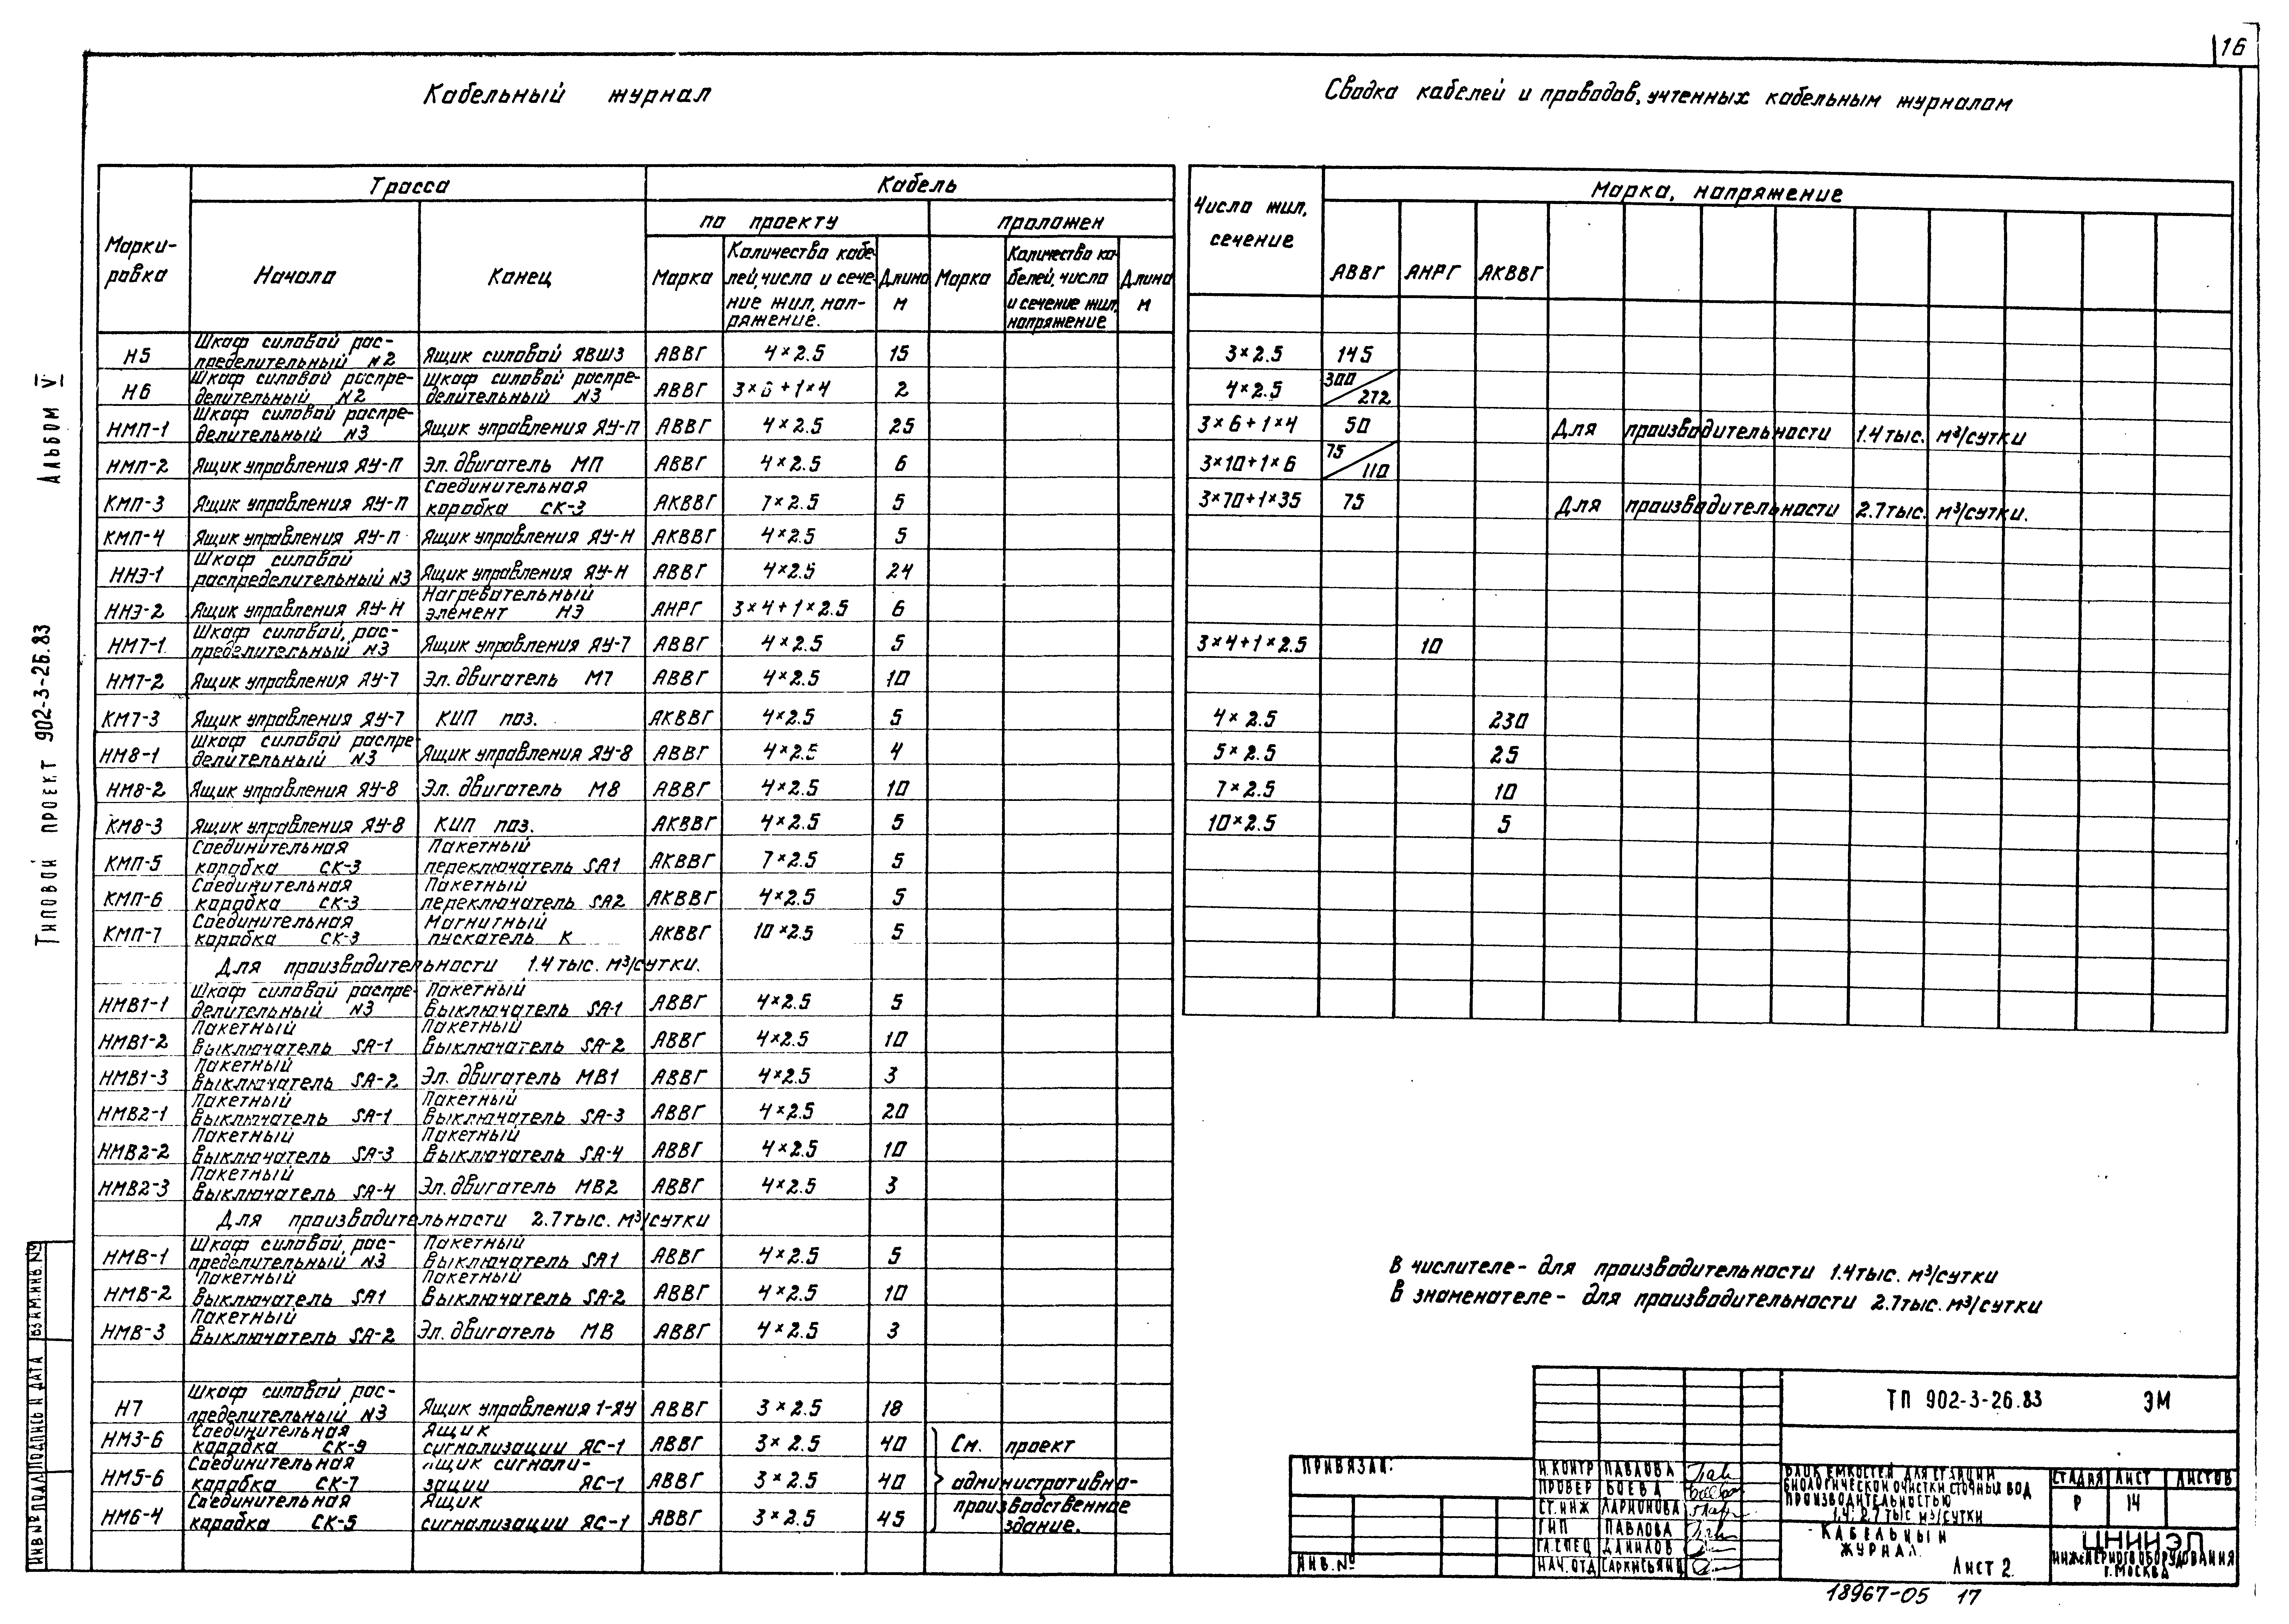 16
Кабельный журнал
Сводка кабелей и проводов, учтенных кабельным журналом
Альбом V
Типовой проект 902-3-26.83
Марки-
ровка
Трасса
Кабель
Начало
Конец
по проекту
проложен
Марка
Количество кабе-
лей, число и сече-
ние жил, нап-
ряжение.
Длина
м
Марка
Количество ка-
белей, число
и сечение жил,
напряжение
Длина
м
Н5 Шкаф силовой рас-
пределительный N2 Ящик силовой ЯВШ3 АВВГ 4×2.5 15
Н6 Шкаф силовой распре-
делительный N2 Шкаф силовой распре-
делительный N3 АВВГ 3×6+1×4 2
НМП-1 Шкаф силовой распре-
делительный N3 Ящик управления ЯУ-П АВВГ 4×2.5 25
НМП-2 Ящик управления ЯУ-П Эл. двигатель МП АВВГ 4×2.5 6
КМП-3 Ящик управления ЯУ-П Соединительная
коробка СК-3 АКВВГ 7×2.5 5
КМП-4 Ящик управления ЯУ-П Ящик управления ЯУ-Н АКВВГ 4×2.5 5
ННЭ-1 Шкаф силовой
распределительный N3 Ящик управления ЯУ-Н АВВГ 4×2.5 24
ННЭ-2 Ящик управления ЯУ-Н Нагревательный
элемент НЭ АНРГ 3×4+1×2.5 6
НМ7-1 Шкаф силовой, рас-
пределительный N3 Ящик управления ЯУ-7 АВВГ 4×2.5 5
НМ7-2 Ящик управления ЯУ-7 Эл. двигатель М7 АВВГ 4×2.5 10
КМ7-3 Ящик управления ЯУ-7 КИП поз. АКВВГ 4×2.5 5
НМ8-1 Шкаф силовой распре-
делительный N3 Ящик управления ЯУ-8 АВВГ 4×2.5 4
НМ8-2 Ящик управления ЯУ-8 Эл. двигатель М8 АВВГ 4×2.5 10
КМ8-3 Ящик управления ЯУ-8 КИП поз. АКВВГ 4×2.5 5
КМП-5 Соединительная
коробка СК-3 Пакетный
переключатель SA1 АКВВГ 7×2.5 5
КМП-6 Соединительная
коробка СК-3 Пакетный
переключатель SA2 АКВВГ 4×2.5 5
КМП-7 Соединительная
коробка СК-3 Магнитный
пускатель К АКВВГ 10×2.5 5
Для производительности 1.4 тыс. м³/сутки.
НМВ1-1 Шкаф силовой распре-
делительный N3 Пакетный
выключатель SA-1 АВВГ 4×2.5 5
НМВ1-2 Пакетный
выключатель SA-1 Пакетный
выключатель SA-2 АВВГ 4×2.5 10
НМВ1-3 Пакетный
выключатель SA-2 Эл. двигатель МВ1 АВВГ 4×2.5 3
НМВ2-1 Пакетный
выключатель SA-1 Пакетный
выключатель SA-3 АВВГ 4×2.5 20
НМВ2-2 Пакетный
выключатель SA-3 Пакетный
выключатель SA-4 АВВГ 4×2.5 10
НМВ2-3 Пакетный
выключатель SA-4 Эл. двигатель МВ2 АВВГ 4×2.5 3
Для производительности 2.7 тыс. м³/сутки
НМВ-1 Шкаф силовой, рас-
пределительный N3 Пакетный
выключатель SA1 АВВГ 4×2.5 5
НМВ-2 Пакетный
выключатель SA1 Пакетный
выключатель SA-2 АВВГ 4×2.5 10
НМВ-3 Пакетный
выключатель SA-2 Эл. двигатель МВ АВВГ 4×2.5 3
Н7 Шкаф силовой рас-
пределительный N3 Ящик управления 1-ЯУ АВВГ 3×2.5 18
НМ3-6 Соединительная
коробка СК-9 Ящик
сигнализации ЯС-1 АВВГ 3×2.5 40
НМ5-6 Соединительная
коробка СК-7 Ящик сигнали-
зации ЯС-1 АВВГ 3×2.5 40
НМ6-4 Соединительная
коробка СК-5 Ящик
сигнализации ЯС-1 АВВГ 3×2.5 45
См. проект
административно-
производственное
здание.
Число жил,
сечение
Марка, напряжение
АВВГ АНРГ АКВВГ
3×2.5 145
4×2.5 300/272
3×6+1×4 50 Для производительности 1.4 тыс. м³/сутки
3×10+1×6 75/110
3×70+1×35 75 Для производительности 2.7 тыс. м³/сутки.
3×4+1×2.5 10
4×2.5 230
5×2.5 25
7×2.5 10
10×2.5 5
В числителе - для производительности 1.4 тыс. м³/сутки
В знаменателе - для производительности 2.7 тыс. м³/сутки
ИНВ № ПОДЛ ПОДПИСЬ И ДАТА ВЗАМ.ИНВ.№
ПРИВЯЗАН:
ИНВ.№
Н.КОНТР ПАВЛОВА
ПРОВЕР БОЕВА
СТ.ИНЖ ЛАРИОНОВА
ГИП ПАВЛОВА
ГЛ.СПЕЦ ДАНИЛОВ
НАЧ.ОТД САРКИСЬЯНЦ
ТП 902-3-26.83 ЭМ
БЛОК ЕМКОСТЕЙ ДЛЯ СТАНЦИИ
БИОЛОГИЧЕСКОЙ ОЧИСТКИ СТОЧНЫХ ВОД
ПРОИЗВОДИТЕЛЬНОСТЬЮ
1.4; 2.7 ТЫС М³/СУТКИ
СТАДИЯ ЛИСТ ЛИСТОВ
Р 14
КАБЕЛЬНЫЙ
ЖУРНАЛ.
Лист 2.
ЦНИИЭП
ИНЖЕНЕРНОГО ОБОРУДОВАНИЯ
Г.МОСКВА
18967-05 17